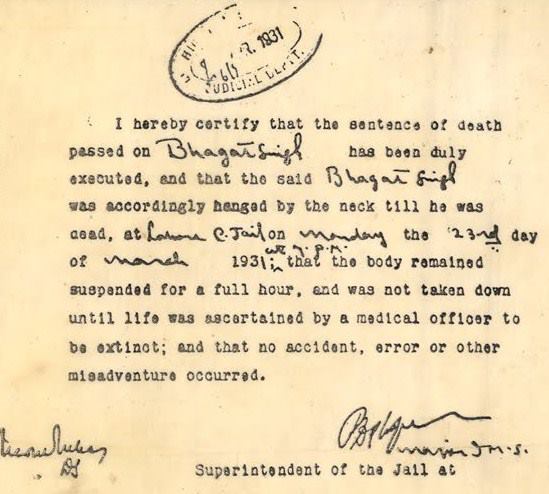 1931
JUDICIAL DEPTT.
I hereby certify that the sentence of death
passed on Bhagat Singh has been duly
executed, and that the said Bhagat Singh
was accordingly hanged by the neck till he was
dead, at Lahore C. Jail on Monday the 23rd day
at 7 P.M.
of March 1931; that the body remained
suspended for a full hour, and was not taken down
until life was ascertained by a medical officer to
be extinct; and that no accident, error or other
misadventure occurred.
Major I.M.S.
Superintendent of the Jail at